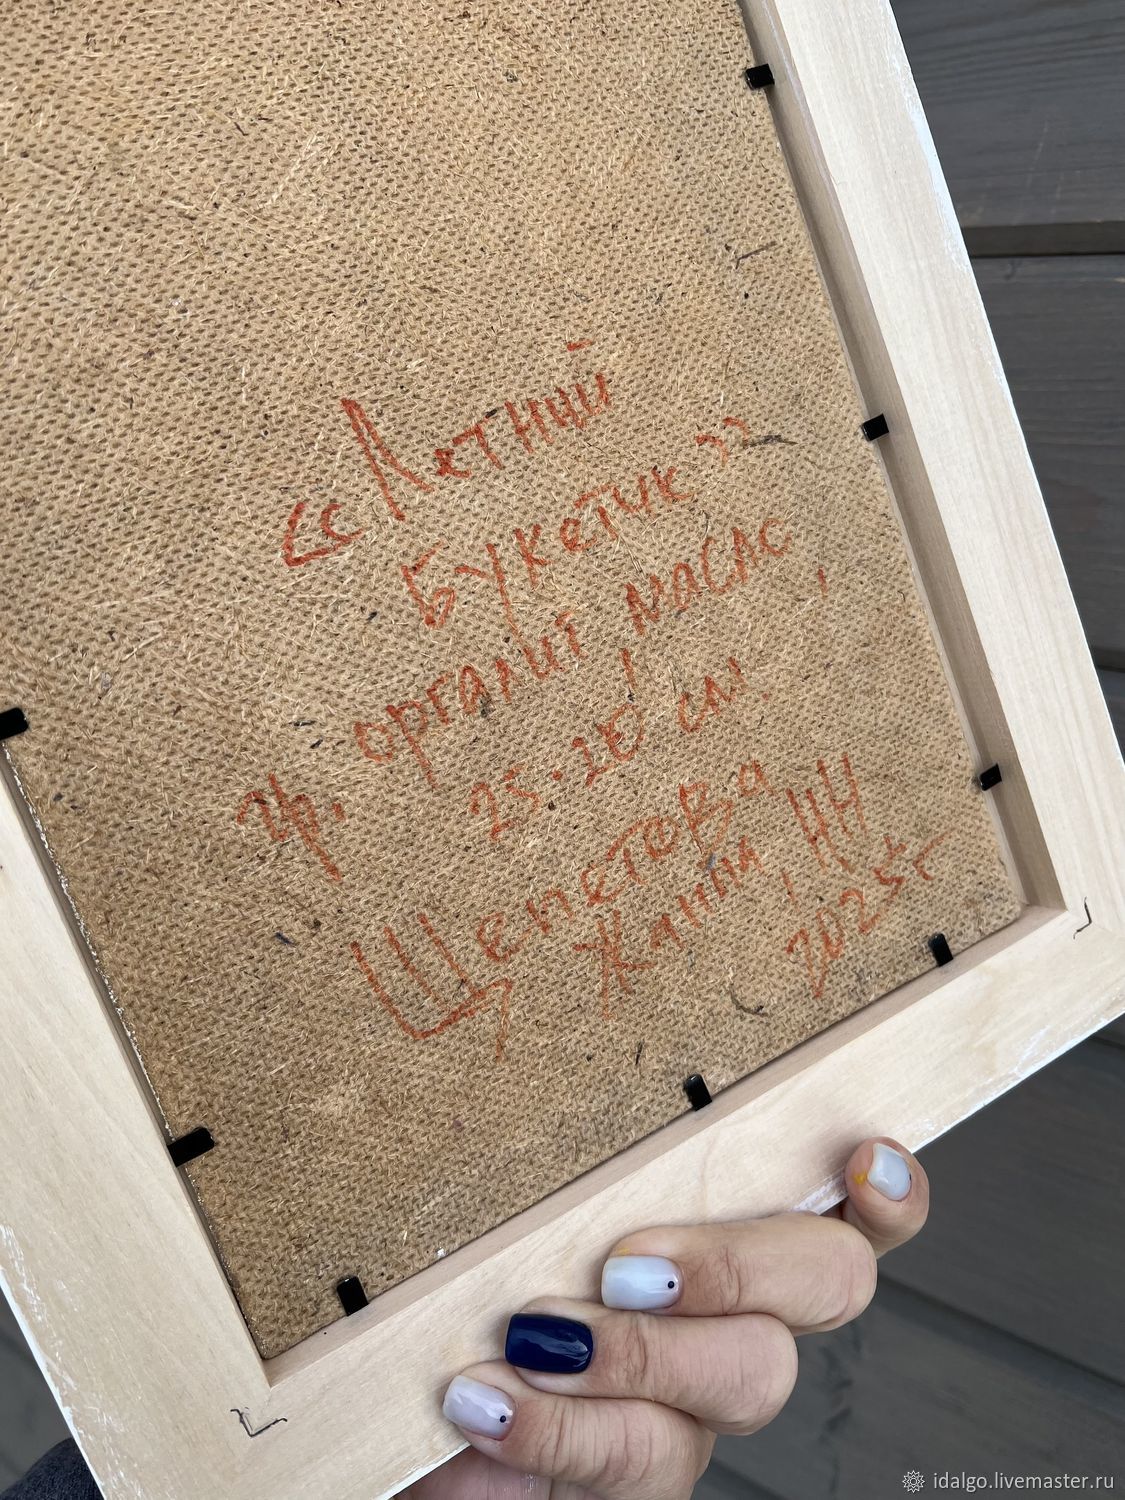 «Летний
Букетик»
гр. оргалит, масло,
25·20 см!
Щепетова
Жанна, НН
2025 г
idalgo.livemaster.ru